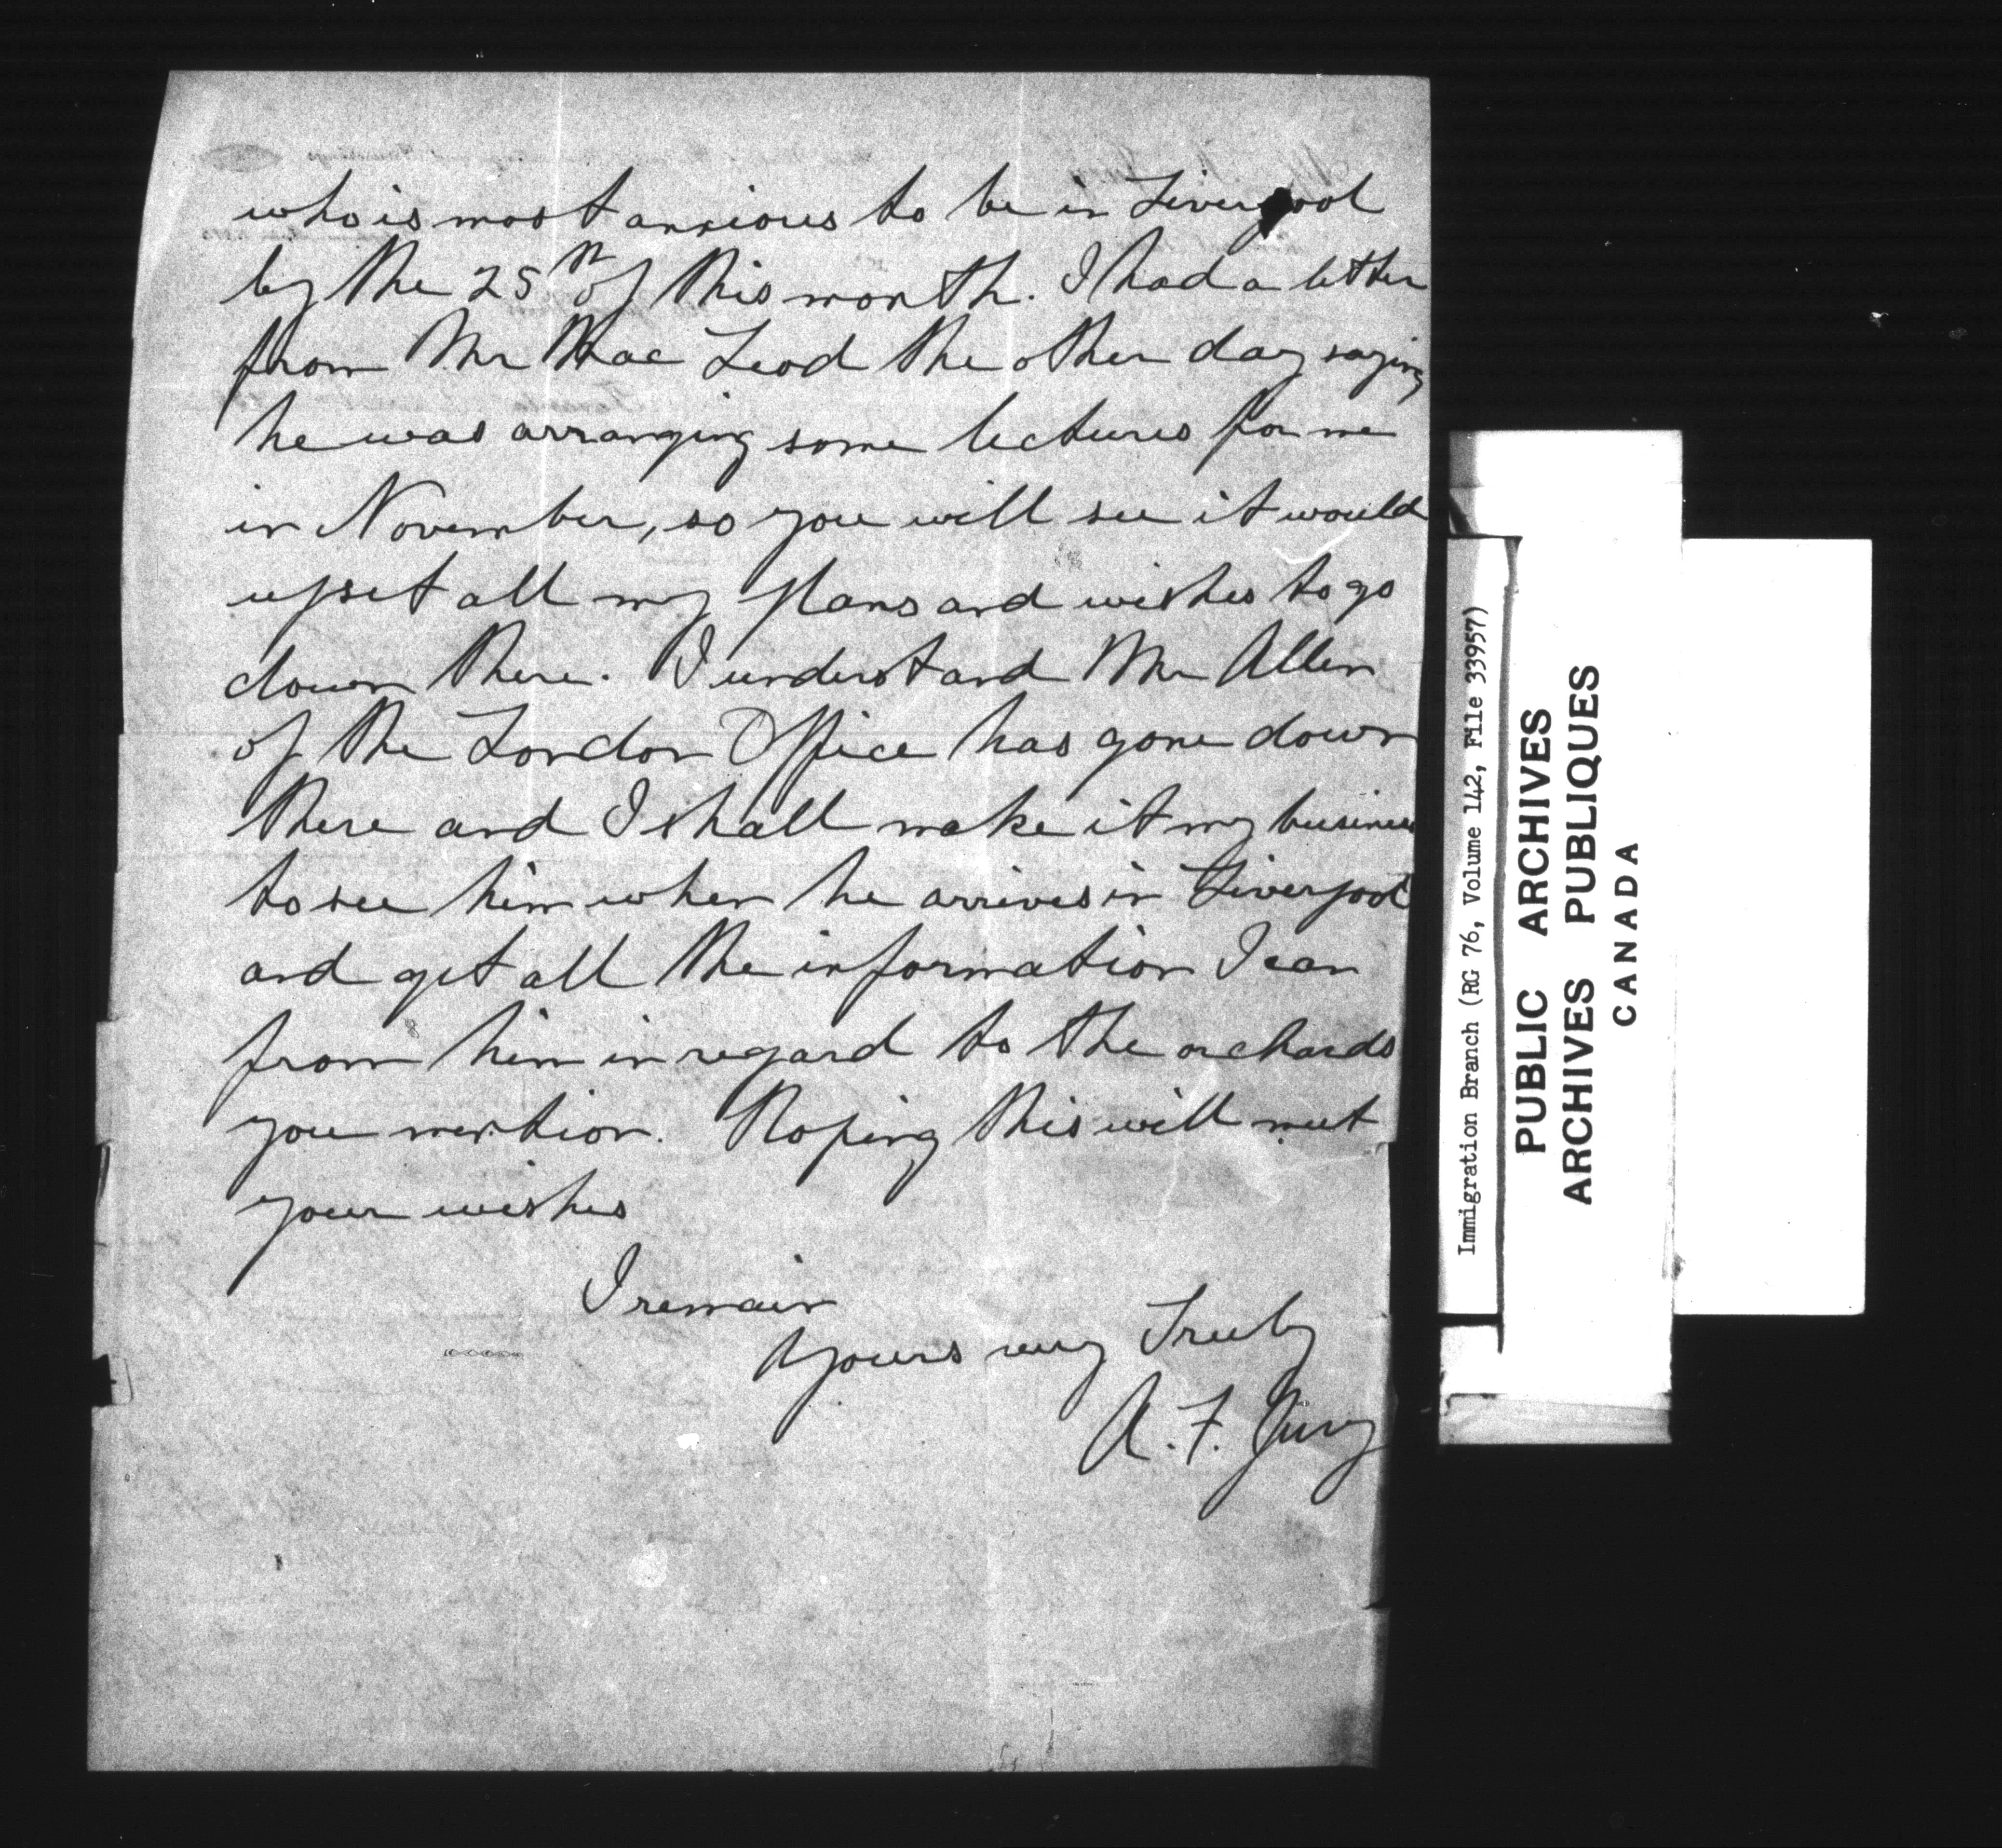 who is most anxious to be in Liverpool
by the 25th of this month. I had a letter
from Mr Mac Leod the other day saying
he was arranging some lectures for me
in November, so you will see it would
upset all my plans and wishes to go
down there. I understand Mr Allen
of the London Office has gone down
there and I shall make it my business
to see him when he arrives in Liverpool
and get all the information I can
from him in regard to the orchards
you mention. Hoping this will meet
your wishes
I remain
Yours very Truly
A. F. Jury
Immigration Branch (RG 76, Volume 142, File 33957)
PUBLIC ARCHIVES
ARCHIVES PUBLIQUES
CANADA